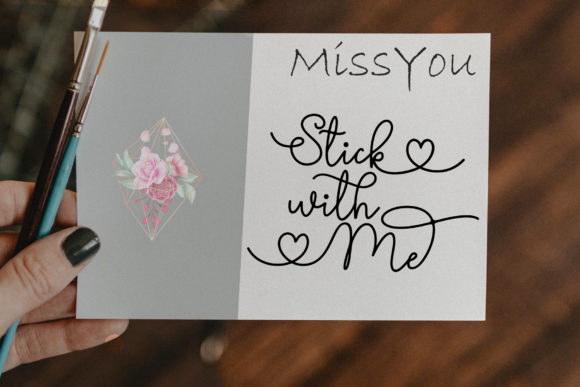 Miss You
Stick
with
Me